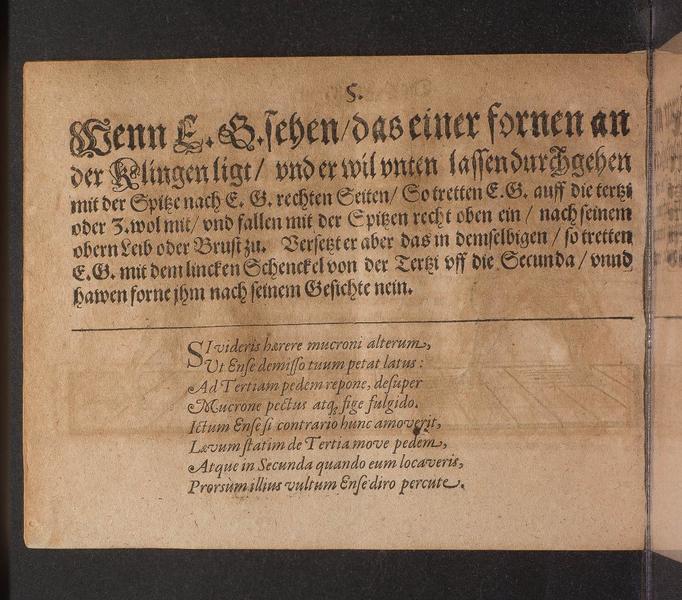 5.
Wenn E. G. sehen/das einer fornen an
der Klingen ligt/ vnd er wil vnten lassen durchgehen
mit der Spitze nach E. G. rechten Seiten/ So tretten E.G. auff die tertzi
oder 3. wol mit/ vnd fallen mit der Spitzen recht oben ein / nach seinem
obern Leib oder Brust zu. Versetzt er aber das in demselbigen / so tretten
E.G. mit dem lincken Schenckel von der Tertzi vff die Secunda / vnnd
hawen forne jhm nach seinem Gesichte nein.
SI videris hærere mucroni alterum,
Vt Ense demisso tuum petat latus:
Ad Tertiam pedem repone, desuper
Mucrone pectus atq; fige fulgido.
Ictum Ense si contrario hunc amoverit,
Lævum statim de Tertia move pedem,
Atque in Secunda quando eum locaveris,
Prorsùm illius vultum Ense diro percute.